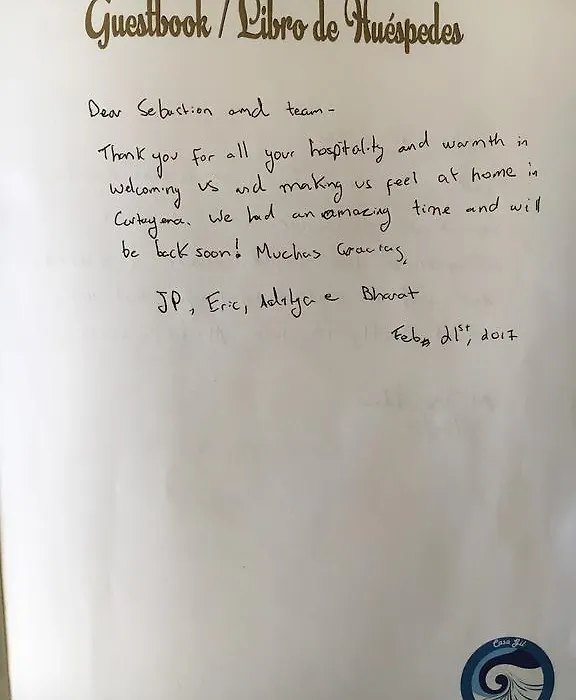 Guestbook / Libro de Huéspedes
Dear Sebastian and team-
Thank you for all your hospitality and warmth in
welcoming us and making us feel at home in
Cartagena. We had an amazing time and will
be back soon! Muchas Gracias,
JP, Eric, Aditya e Bharat
Feb, 21st, 2017
Casa Gil